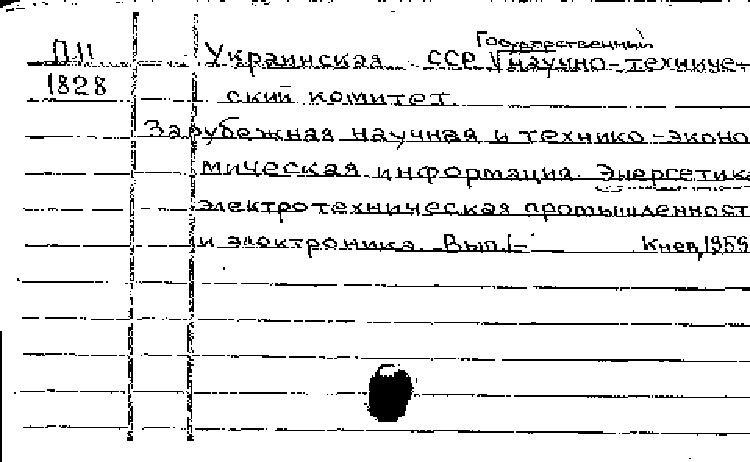 П11
1828
Государственный
Украинская ССР. научно-техниче-
ский комитет.
Зарубежная научная и технико-эконо
мическая информация. Энергетика
электротехническая промышленност
и электроника. Вып. 1-
Киев, 1959